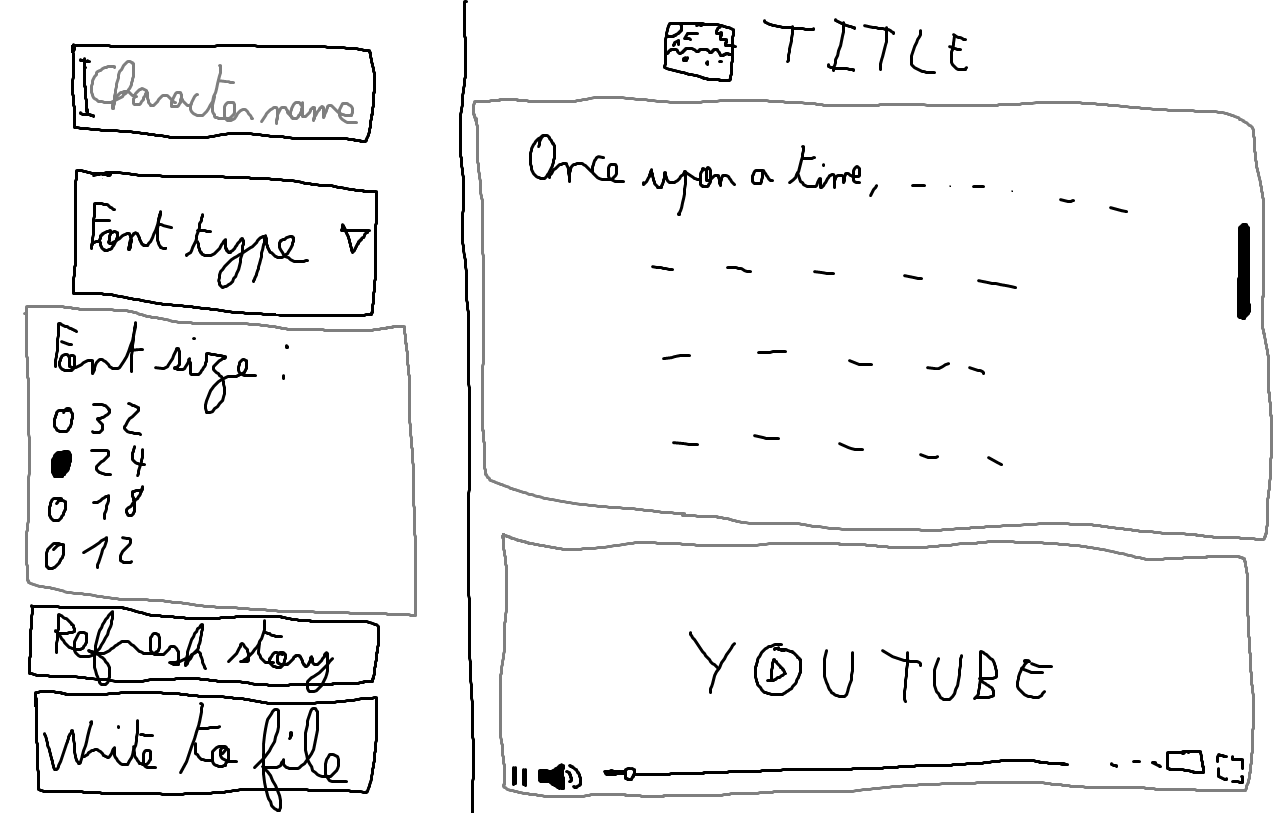 Character name
Font type
Font size :
32
24
18
12
Refresh story
Write to file
TITLE
Once upon a time,
YOUTUBE